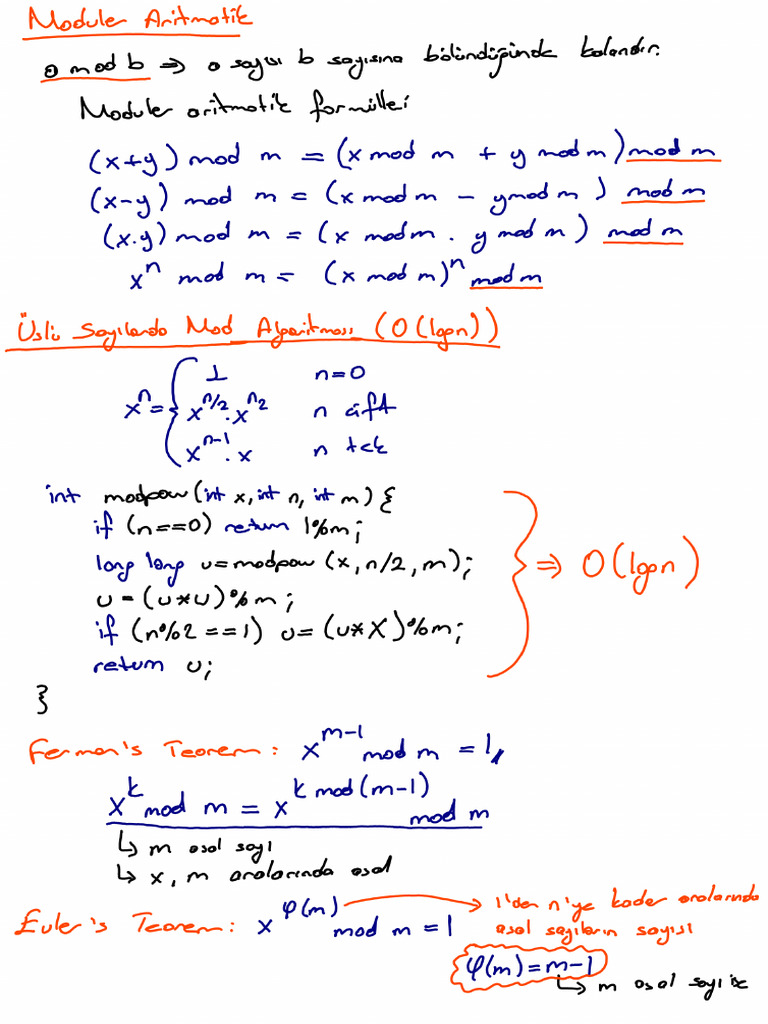 Moduler Aritmatik
a mod b => a sayısı b sayısına bölündüğünde kalandır.
Moduler aritmatik formülleri
(x+y) mod m = (x mod m + y mod m) mod m
(x-y) mod m = (x mod m - y mod m) mod m
(x.y) mod m = (x mod m . y mod m) mod m
x^n mod m = (x mod m)^n mod m
Üslü Sayılarda Mod Algoritması (O(logn))
x^n = { 1 n=0
x^n/2 . x^n2 n çift
x^n-1 . x n tek
int modpow(int x, int n, int m) {
if (n==0) return 1%m;
long long u=modpow(x,n/2,m);
u=(u*u)%m;
if (n%2==1) u=(u*x)%m;
return u;
}
=> O(logn)
Ferman's Teorem: x^m-1 mod m = 1,
x^k mod m = x^k mod(m-1) mod m
↳ m asal sayı
↳ x, m aralarında asal
Euler's Teorem: x^φ(m) mod m = 1
→ 1'den n'ye kadar aralarında
asal sayıların sayısı
φ(m) = m-1
↳ m asal sayı ise